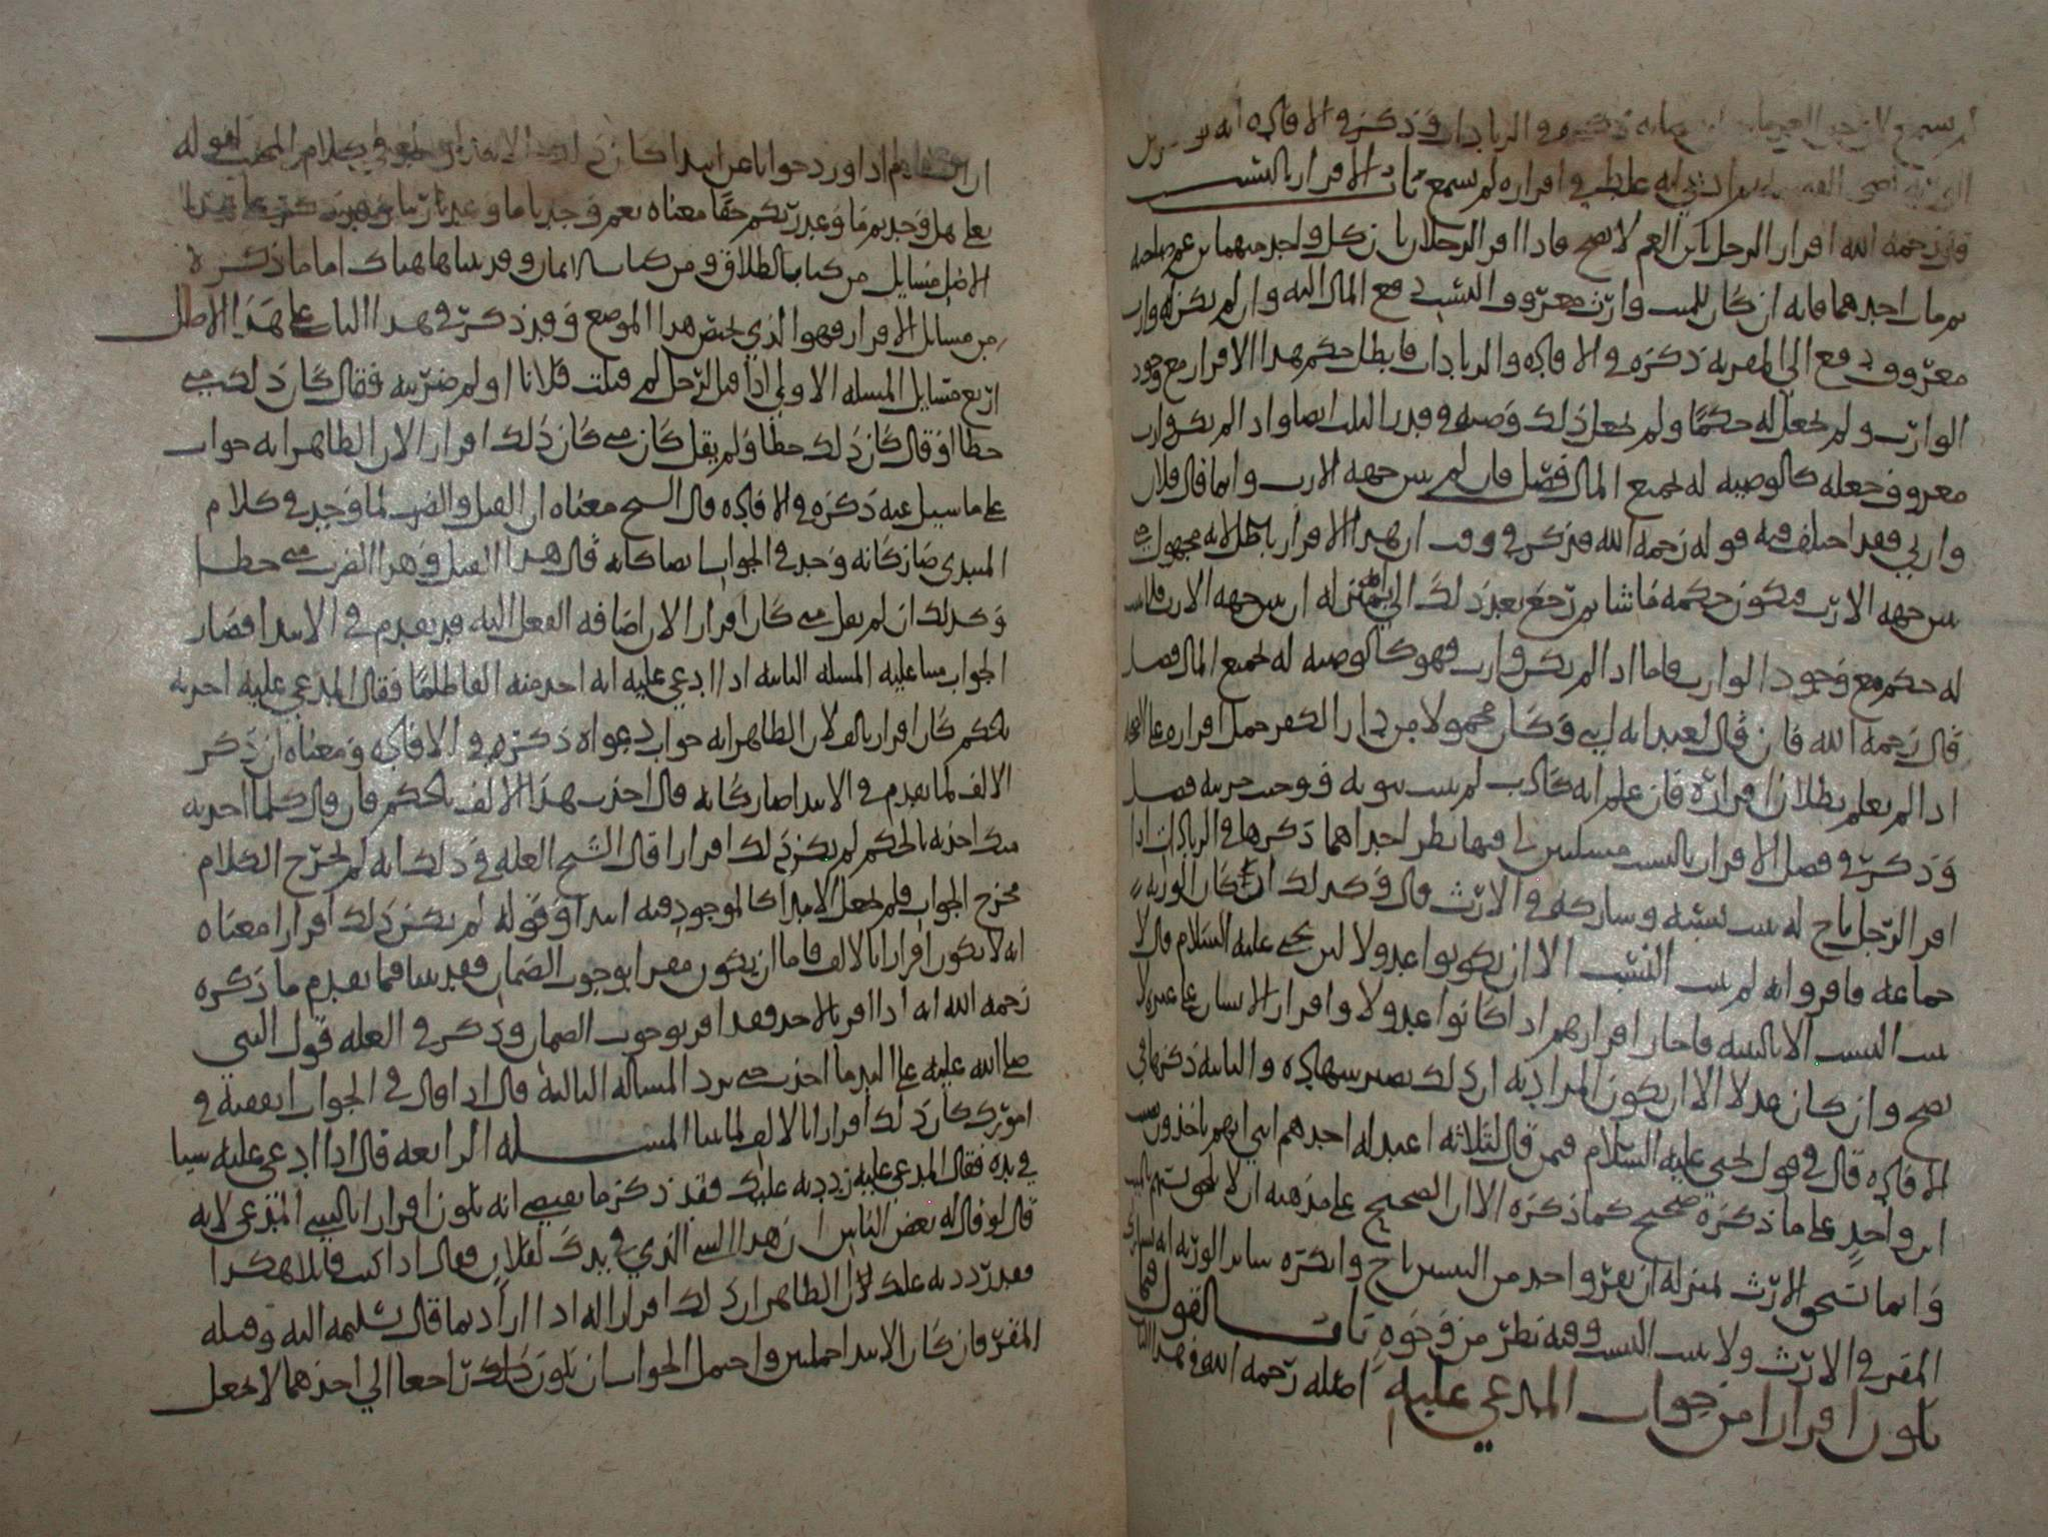 لم يسمع لان حق الغير ذكره في الزيادات وذكر في الافاده انه
الورثه انه غلط في اقراره لم يسمع باب الاقرار بالنسب
قال رحمه الله اقرار الرجل بابن العم لا يصح فاذا اقر الرجلان بان كل واحد منهما ابن عم صاحبه
ثم مات احدهما فانه ان كان للميت وارث معروف النسب دفع المال اليه وان لم يكن له وارث
معروف دفع الى المقر به ذكره في الافاده والزيادات فابطل حكم هذا الاقرار مع وجود
الوارث ولم يجعل له حكما ولم يجعل ذلك وصيه في قدر الثلث ايضا واذا لم يكن وارث
معروف جعله كالوصيه له بجميع المال فصل فان لم يبين جهه الارث وانما قال فلان
وارثي فقد اختلف فيه قوله رحمه الله فذكر في وقت ان هذا الاقرار باطل لانه مجهول حتى
يبين جهه الارث فيكون حكمه ما شا ثم رجع بعد ذلك الى انه بمنزله ان يبين جهه الارث فلا يثبت
له حكم مع وجود الوارث فاما اذا لم يكن وارث فهو كالوصيه له بجميع المال فصل
قال رحمه الله فان قال لعبد انه ابني وكان محمولا من دار الكفر حمل اقراره على الصحه
اذا لم يعلم بطلان اقراره فان علم انه كاذب لم يثبت بنوته ووجب حريته فصل
وذكر في فصل الاقرار بالنسب مسلتين لي فيهما نظر احداهما ذكرها في الزيادات اذا
اقر الرجل باخ له ثبت نسبه وشاركه في الارث قال وكذلك ان كان الورثه
جماعه فاقروا به لم يثبت النسب الا ان يكونوا عدولا ليس يحيى عليه السلام قال لا
يثبت النسب الا بالبينه فاجاز اقرارهم اذا كانوا عدولا واقرار الانسان على غيره لا
يصح وان كان عدلا الا ان يكون المراد به ان ذلك يصير شهاده والثانيه ذكرها في
الافاده قال في قول يحيى عليه السلام فيمن قال لثلاثه اعبد له احدهم ابني انهم ياخذون نصيب
ابن واحد على ما ذكره صحيح كما ذكره الا ان الصحيح على مذهبه ان لا يثبت
وانما تستحق الارث بمنزله ان يقر واحد من البنين باخ وانكره سائر الورثه انه يشارك
المقر في الارث ولا يثبت النسب وفيه نظر من وجوه باب القول فيما
يكون اقرارا من جواب المدعي عليه اصله رحمه الله في هذا الباب
ان الكلام اذا ورد جوابا عن ابتدا كان ذلك الابتدا في كلام المجيب لقوله
تعالى هل وجدتم ما وعد ربكم حقا معناه نعم وجدنا ما وعدنا ربنا وقد ذكر على هذا
الاصل مسايل من كتاب الطلاق ومن كتاب الايمان وقد بيناها هناك اما ما ذكره
من مسايل الاقرار فهو الذي يختص هذا الموضع وقد ذكر في هذا الباب على هذا الاصل
اربع مسايل المسله الاولى اذا قيل لرجل لم قتلت فلانا او لم ضربته فقال كان ذلك مني
خطا او قال كان ذلك خطا ولم يقل كان مني كان ذلك اقرارا لان الظاهر انه جواب
على ما سيل عنه ذكره في الافاده قال الشيخ معناه ان القتل والضرب لما وجد في كلام
المبتدي صار كانه وجد في الجواب ايضا كانه قال هذا القتل وهذا الضرب مني خطا
وكذلك ان لم يقل مني كان اقرارا لان اضافه الفعل اليه قد تقدم في الابتدا فصار
الجواب مبنيا عليه المسله الثانيه اذا ادعي عليه انه اخذ منه الفا ظلما فقال المدعي عليه اخذته
بحكم كان اقرارا بالف لان الظاهر انه جواب دعواه ذكره في الافاده ومعناه ان ذكر
الالف لما تقدم في الابتدا صار كانه قال اخذت هذا الالف بالحكم فان قال كلما اخذته
منك اخذته بالحكم لم يكن ذلك اقرارا قال الشيخ العله في ذلك انه لم يخرج الكلام
مخرج الجواب فلم يجعل الابتدا كالموجود فيه ابتدا وقوله لم يكن ذلك اقرارا معناه
انه لا يكون اقرارا بالالف فاما ان يكون مقرا بوجوب الضمان فقد بينا فيما تقدم ما ذكره
رحمه الله انه اذا اقر بالاخذ فقد اقر بوجوب الضمان وذكر في العله قول النبي
صلى الله عليه على اليد ما اخذت حتى ترد المساله الثالثه قال اذا قال في الجواب
كان ذلك اقرارا بالالف لما بينا المسله الرابعه قال اذا ادعي عليه شيا
في يده فقال المدعي عليه رددته عليك فقد ذكر ما يقتضي انه يكون اقرارا بالشي المدعى لانه
قال لو قال له بعض الناس ان هذا الشي الذي في يدك لفلان فقال اذا كنت قايلا هكذا
فقد رددته عليك لان الظاهر ان ذلك اقرارا له اذا اراد بما قال تسليمه اليه وقبله
المقر فان كان الابتدا جملتين واحتمل الجواب ان يكون ذلك راجعا الى احدهما لا يجعل